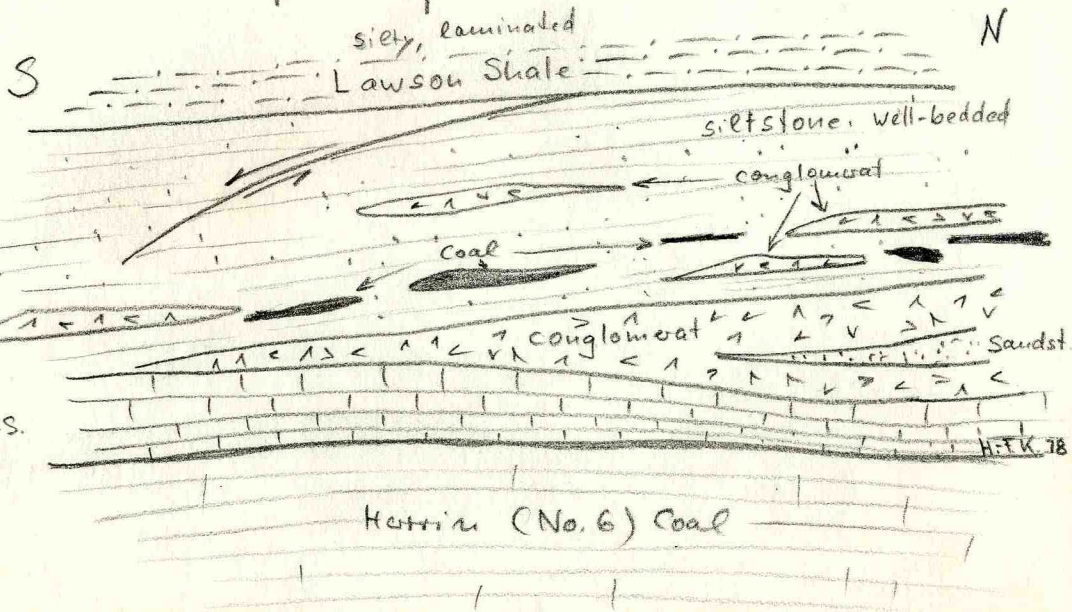 silty, laminated
N
S
Lawson Shale
siltstone. well-bedded
conglomerat
coal
conglomerat
Sandst.
s.
H.F.K. 78
Herrin (No. 6) Coal